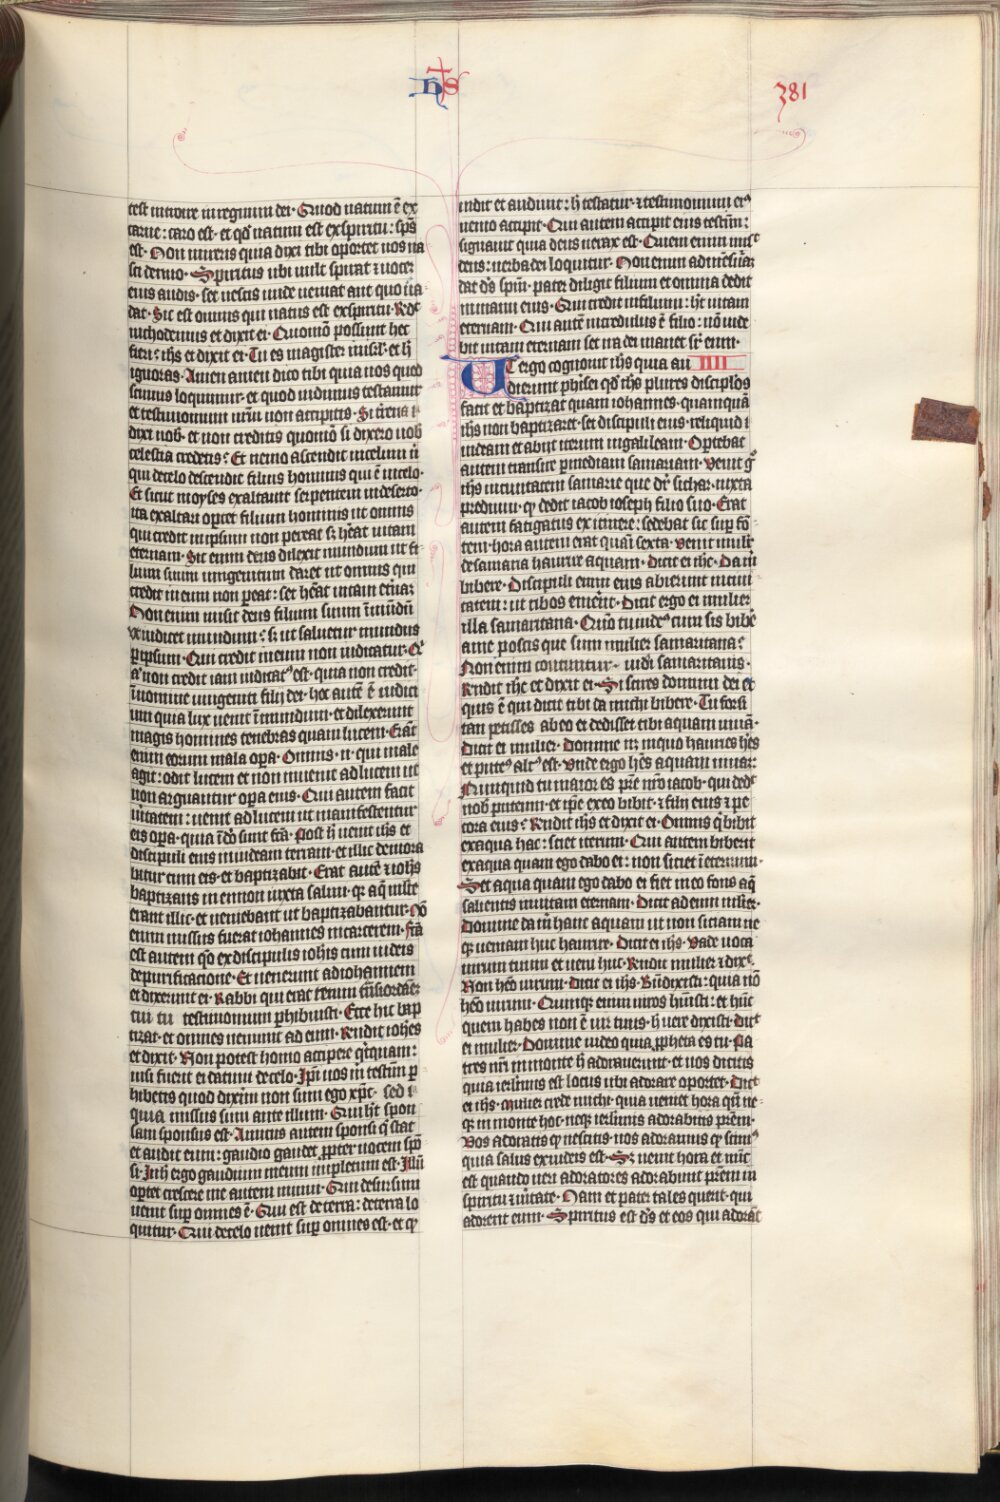 hs
381
test introire in regnum dei· Quod natum ē ex
carne: caro est· et qd̄ natum est ex spiritu: sp̄s
est· Non mireris quia dixi tibi oportet uos na
sci denuo· Spiritus ubi uult spirat ⁊ uocem
eius audis· set nescis unde ueniat aut quo ua
dat· Sic est omnis qui natus est ex spiritu· Rñd
nichodemus et dixit ei· Quomō possunt hec
fieri: ihs et dixit ei· Tu es magister in isrl· et h̄
ignoras· Amen amen dico tibi quia nos quod
scimus loquimur· et quod uidimus testamur
et testimonium nrm̄ non accipitis· Si terrena
dixi uob̄· et non creditis quomō si dixero uob̄
celestia credetis: Et nemo ascendit in celum n̄
qui de celo descendit filius hominis qui ē in celo·
Et sicut moyses exaltauit serpentem in deserto·
ita exaltari oportet filium hominis ut omnis
qui credit in ipsum non pereat s; habeat uitam
eternam· Sic enim deus dilexit mundum ut fi
lium suum unigenitum daret ut omnis qui
credit in eum non p̄eat: set hēat uitam etnā;
Non enim misit deus filium suum ī mūdū
ut iudicet mundum: s; ut saluetur mundus
p̱ ipsum· Qui credit in eum non iudicatur· Q̄
aͭ non credit iam iudicatꝰ est· quia non credit·
ī nomine unigeniti filij dei· hoc autē ē iudici
um quia lux uenit ī mundum· et dilexerunt
magis homines tenebras quam lucem· Erāt
enim eorum mala opa· Omnis· n̄· qui male
agit: odit lucem et non uenit ad lucem ut
non arguantur opa eius· Qui autem facit
ūitatem: uenit ad lucem ut manifestentur
eis opa· quia ī dō sunt fc̄a· Post h̄ uenit ihs et
discipuli eius in iudeam terram· et illic demora
bitur cum eis· et baptizabit· Erat autē ⁊ ioh̄s
baptizans in ennon iuxta salim· q; aq̄ multe
erant illic· et ueniebant ut baptizabantur· Nō
enim missus fuerat iohannes in carcerem· fc̄a
est autem qō ex discipulis ioh̄is cum iudeis
de purificatione· Et uenerunt ad iohannem
et dixerunt ei· Rabbi qui erat tecum trāsiordanē:
cui tu testimonium phibuisti· Ecce hic bap
tizat· et omnes ueniunt ad eum· Rñdit ioh̄es
et dixit· Non potest homo accipere q̄cquam:
nisi fuerit ei datum de celo· Ipi uos m̄ testim̄ p
hibetis quod dixim̄ non sum ego xp̄c· sed
quia missus sum ante illum· Qui h̄t spon
sam sponsus est· Amicus autem sponsi q̄ stat
et audit eum: gaudio gaudet ꝓpter uocem spō
si· In h̄ ergo gaudium meum impletum est· Illū
oportet crescere me autem minui· Qui desursum
uenit sup omnes ē· Qui est de terra: de terra lo
quitur· Qui de celo uenit sup omnes est· et q̄
uidit et audiuit: h̄ testatur· ⁊ testimonium eiꝰ
nemo accipit· Qui autem accipit eius testim̄:
signauit quia deus uerax est· Quem enim misͭ
deus: uerba dei loquitur· Non enim ad mēsurā;
dat dˢ spm̄· pater diligit filium et omnia dedit
in manu eius· Qui credit in filium: h̄t uitam
eternam· Qui autē incredulus ē filio: nō uide
bit uitam eternam set ira dei manet sr̄ eum·
Ut ergo cognouit ihs quia au IIII
dierunt phisei qd̄ ihs plures discipĺos
facit et baptizat quam iohannes· quamquā
ihs non baptizaret· set discipuli eius· reliquid i
iudeam et abijt iterum in galileam· Oportebat
autem transire p mediam samariam· Venit gͦ
ihs in ciuitatem samarie que dr̄ sichar· iuxta
predium· q̄ dedit iacob ioseph filio suo· Erat
autem fatigatus ex itinere: sedebat sic sup fō
tem· hora autem erat quasi sexta· Venit mulr̄
de samaria haurire aquam· Dicit ei ihc̄· Da m̄
bibere· Discipuli enim eius abierunt in ciui
tatem: ut cibos emerēt· Dicit ergo ei mulier
illa samaritana· Quō tu iudeꝰ cum sis bibē
a me poscis que sum mulier samaritana:
Non enim coutuntur· iudi samaritanis·
Rñdit ihc̄ et dixit ei· Si scires donum dei et
quis ē qui dicit tibi da michi bibere· Tu forsi
tan petisses ab eo et dedisset tibi aquam uiuā·
Dicit ei mulier· Domine n; in quo hauries h̄es
et puteꝰ altꝰ est· Vnde ergo h̄es aquam uiuā;
Nunquid tu maior es p̄re nr̄o iacob· qui dedͭ
nob̄ puteum· et ip̄e ex eo bibit· ⁊ filij eius ⁊ pe
cora eius: Rñdit ihs et dixit ei· Omnis q̄ bibit
ex aqua hac: sciet iterum· Qui autem biberit
ex aqua quam ego dabo ei: non siciet ī eternum·
Set aqua quam ego dabo ei fiet in eo fons aq̄
salientis in uitam eternam· Dicit ad eum mlīer·
Domine da m̄ hanc aquam ut non siciam ne
q; ueniam huc haurire· Dicit ei ihs· Vade uoca
uirum tuum et ueni huc· Rñdit mulier ⁊ dixͭ·
Non hēo uirum· Dicit ei ihs· Bn̄ dixisti: quia nō
hēo uirum· Quinq; enim uiros hūisti: et hūc
quem habes non ē uir tuus· h̄ uere dixisti· Dicͭ
ei mulier· Domine uideo quia ꝓpheta es tu· Pa
tres nr̄i in monte h̄ adorauerunt· et uos dicitis
quia ierl̄mis est locus ubi adorare oportet· Dicͭ
ei ihs· Mulier crede michi· quia ueniet hora qn̄ ne
q; in monte hoc· neq; ierl̄imis adorabitis prēm·
Vos adoratis q̄ nescitis· nos adoramus q̄ scimꝰ
quia salus ex iudeis est· S; uenit hora et nūc
est quando ueri adoratores adorabunt prēm in
spiritu ⁊ ūitate· Nam et pater tales querit· qui
adorent eum· Spiritus est dˢ et eos qui adorāt